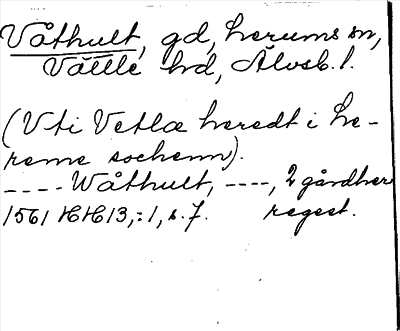 Våthult, gd, Herrums sn,
Vättle hd, Älvsb. l.
(Vti Vetlæ heredt i he-
reme sochenn).
---- Wåthult, ----, 2 gårdher
1561 HH 13,:1, s. 7. regest.